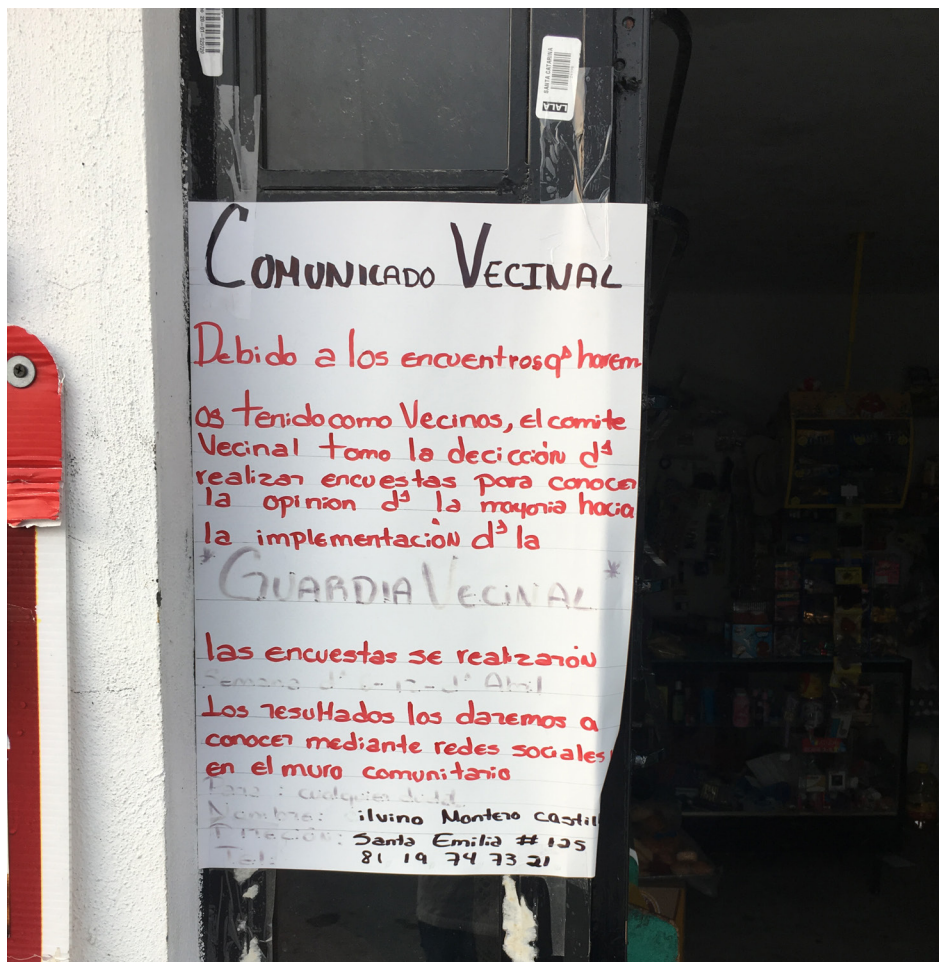 SANTA CATARINA
LALA
COMUNICADO VECINAL
Debido a los encuentros qᵉ harem
os tenido como Vecinos, el comite
Vecinal tomo la decicción dᵉ
realizar encuestas para conocer
la opinion dᵉ la mayoria hacia
la implementación dᵉ la
*GUARDIA VECINAL*
las encuestas se realizarón
Semana dᵉ Abril
Los resultados los daremos a
conocer mediante redes sociales
en el muro comunitario
Para: cualquier duda
Nombre: ilvino Montero Castil
Dirección: Santa Emilia # 125
Tel: 81 19 74 73 21